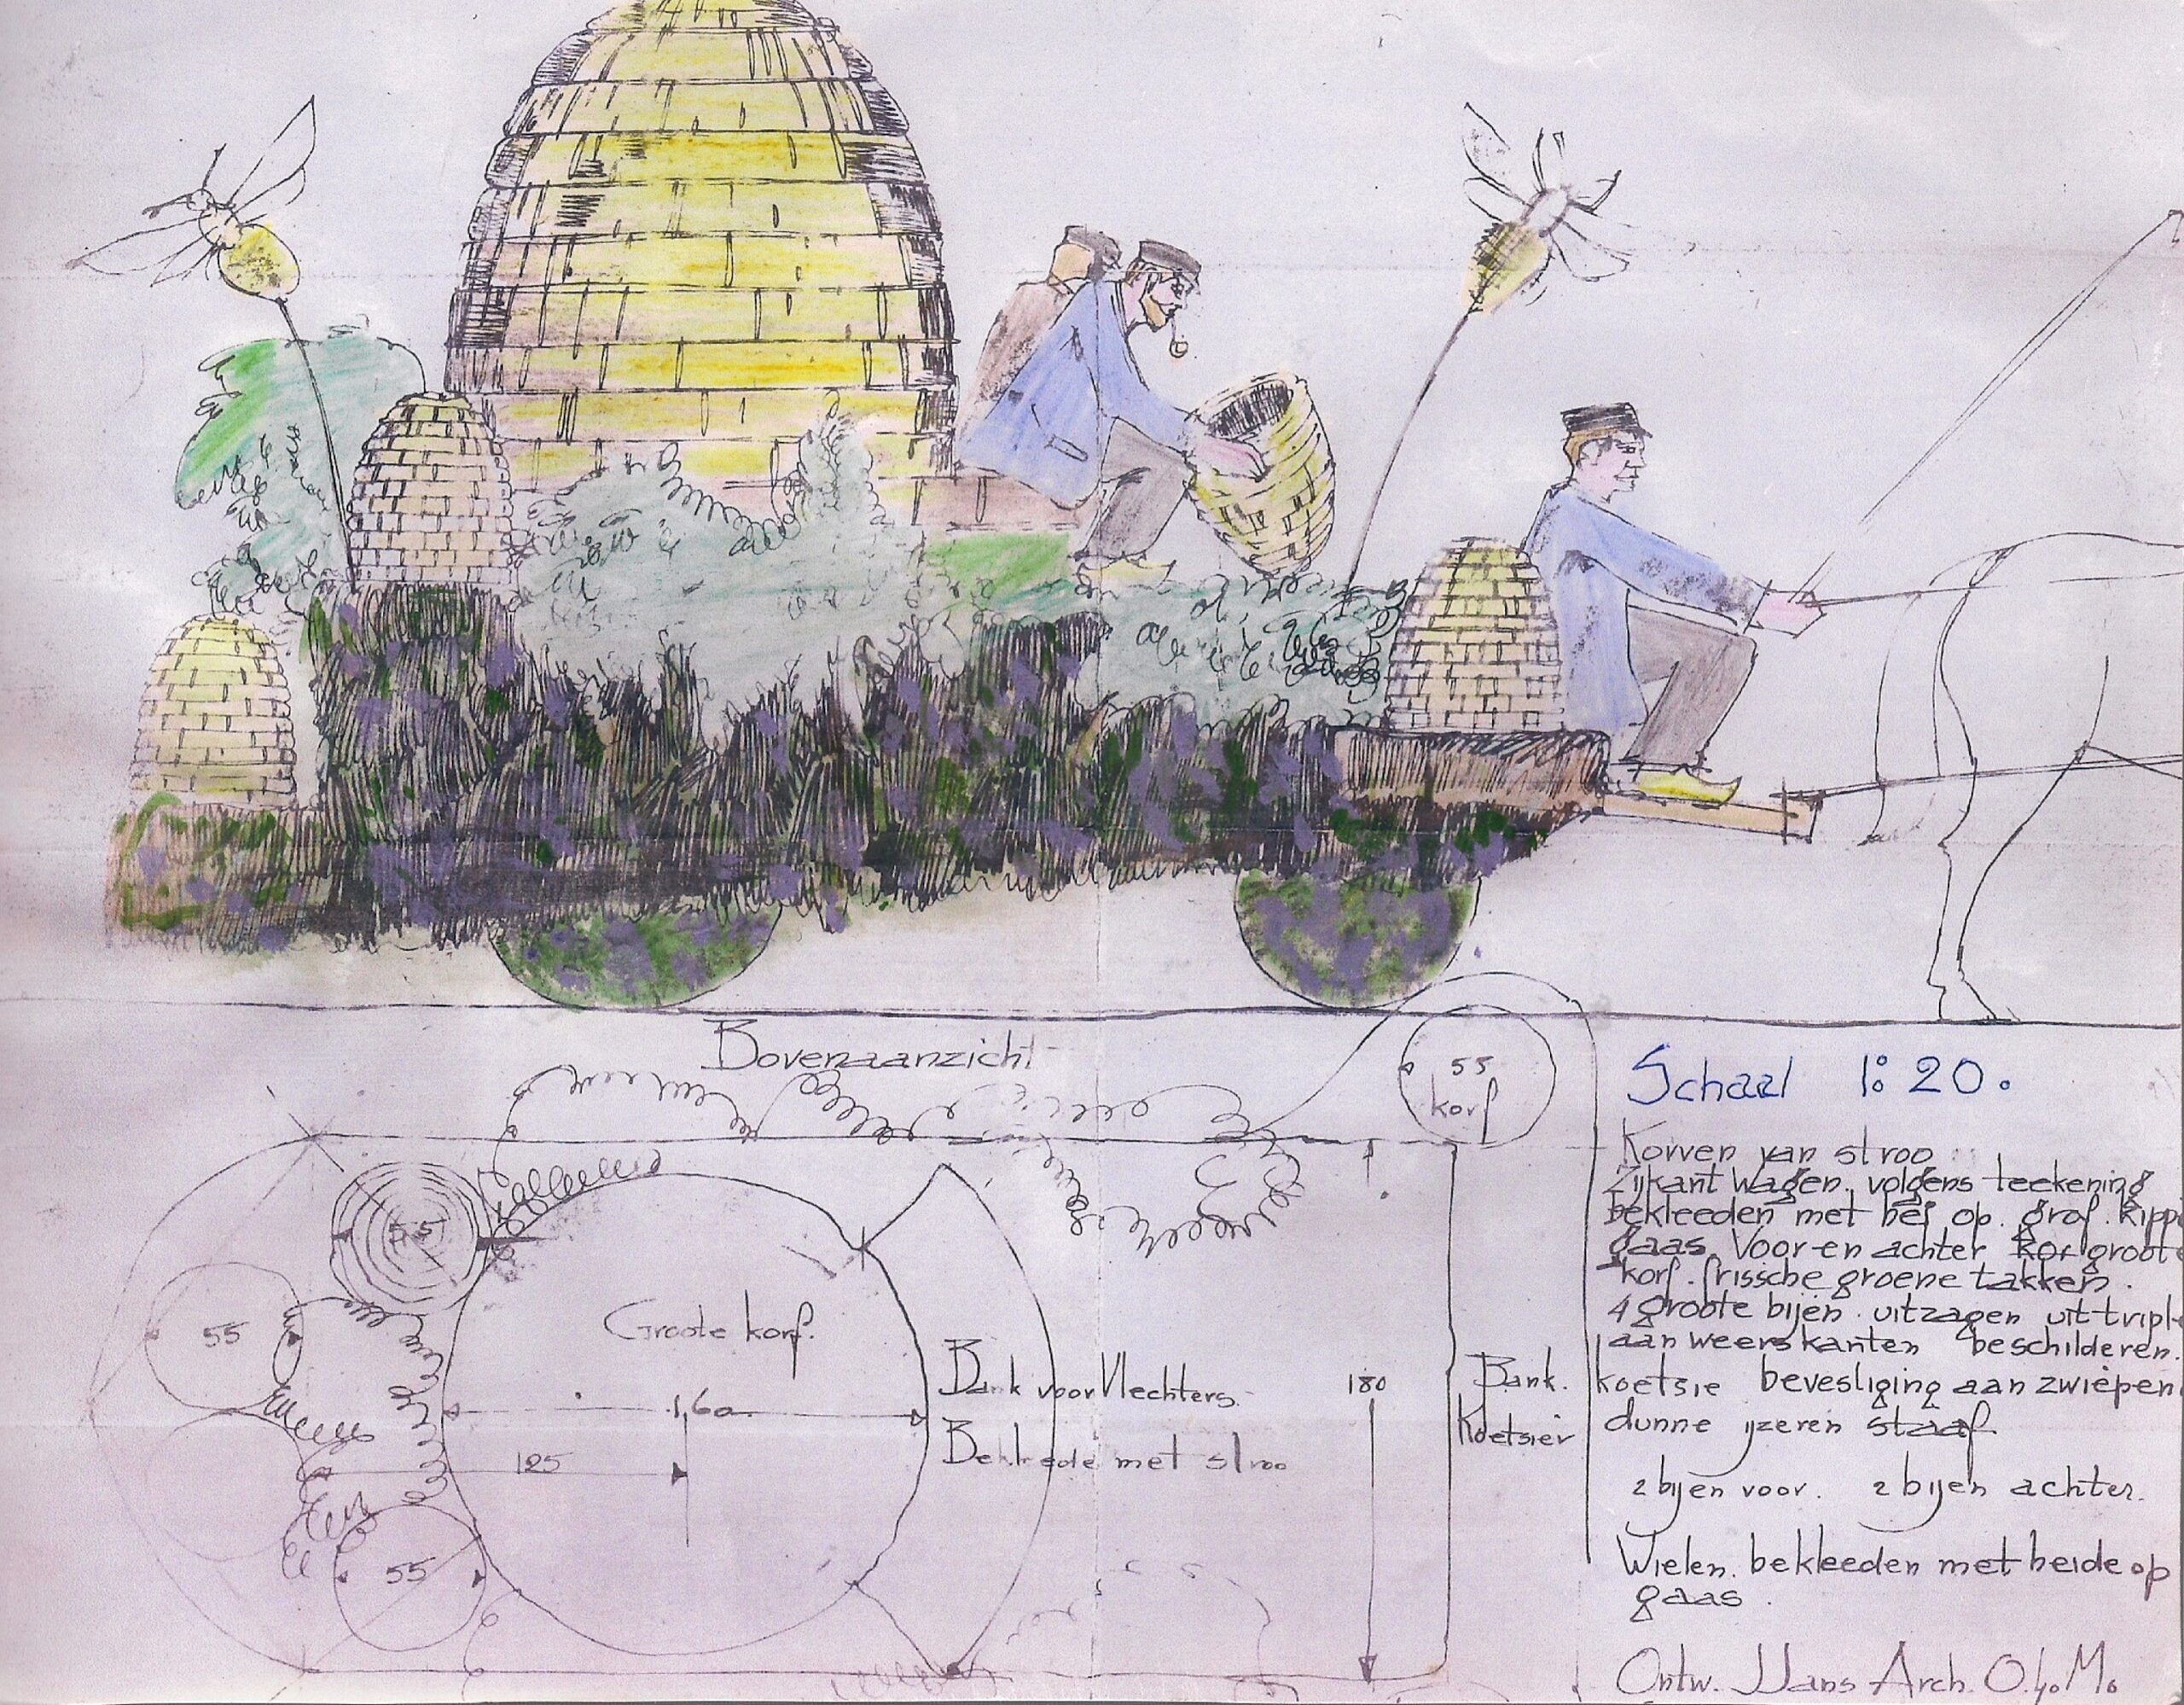 Bovenaanzicht
Schaal 1:20.
55
korf
Korven van stroo
Zijkant Wagen. volgens teekening
bekleeden met hei op. grof. kipp
gaas. Voor en achter groote
korf. frissche groene takken.
4 groote bijen. uitzagen uit tripl
aan weerskanten beschilderen.
koetsie bevestiging aan zwiepen
dunne ijzeren staaf.
2 bijen voor. 2 bijen achter.
Wielen. bekleeden met heide op
gaas.
Ontw. Arch. O.
55
55
Groote korf.
1,60
125
55
Bank voor Vlechters.
Bekleede met stroo
180
Bank.
Koetsier